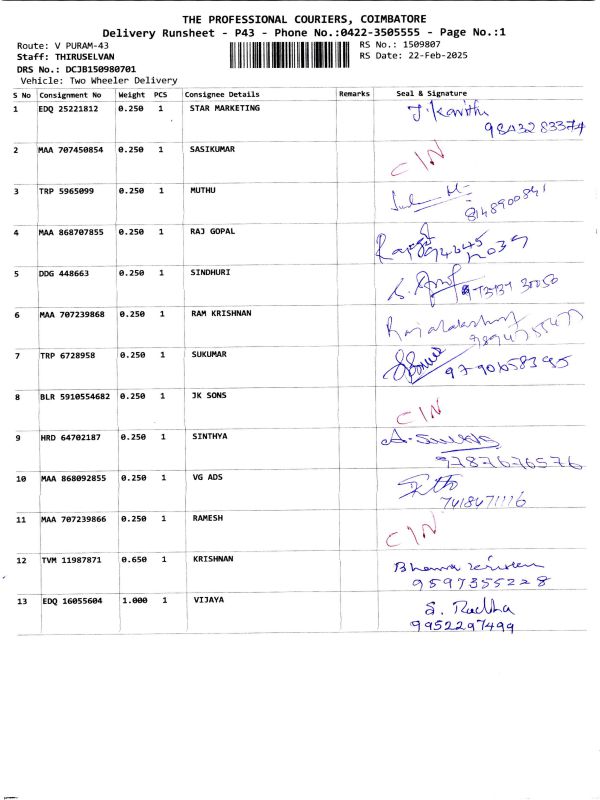 THE PROFESSIONAL COURIERS, COIMBATORE
Delivery Runsheet - P43 - Phone No.:0422-3505555 - Page No.:1
Route: V PURAM-43 RS No.: 1509807
Staff: THIRUSELVAN RS Date: 22-Feb-2025
DRS No.: DCJB150980701
Vehicle: Two Wheeler Delivery
S No Consignment No Weight PCS Consignee Details Remarks Seal & Signature
1 EDQ 25221812 0.250 1 STAR MARKETING J. Kavitha
9843283374
2 MAA 707450854 0.250 1 SASIKUMAR CIN
3 TRP 5965099 0.250 1 MUTHU
8148900841
4 MAA 868707855 0.250 1 RAJ GOPAL
5 DDG 448663 0.250 1 SINDHURI
6 MAA 707239868 0.250 1 RAM KRISHNAN
7 TRP 6728958 0.250 1 SUKUMAR 9790658395
8 BLR 5910554682 0.250 1 JK SONS CIN
9 HRD 64702187 0.250 1 SINTHYA
9787676576
10 MAA 868092855 0.250 1 VG ADS
7418471116
11 MAA 707239866 0.250 1 RAMESH CIN
12 TVM 11987871 0.650 1 KRISHNAN
9597355228
13 EDQ 16055604 1.000 1 VIJAYA S. Radha
9952297499